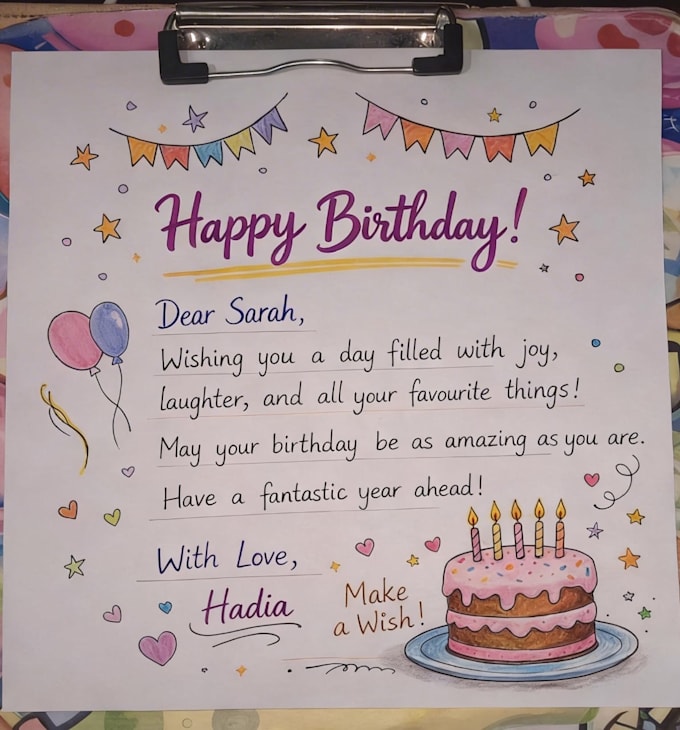 Happy Birthday!
Dear Sarah,
Wishing you a day filled with joy,
laughter, and all your favourite things!
May your birthday be as amazing as you are.
Have a fantastic year ahead!
With Love,
Hadia
Make
a Wish!